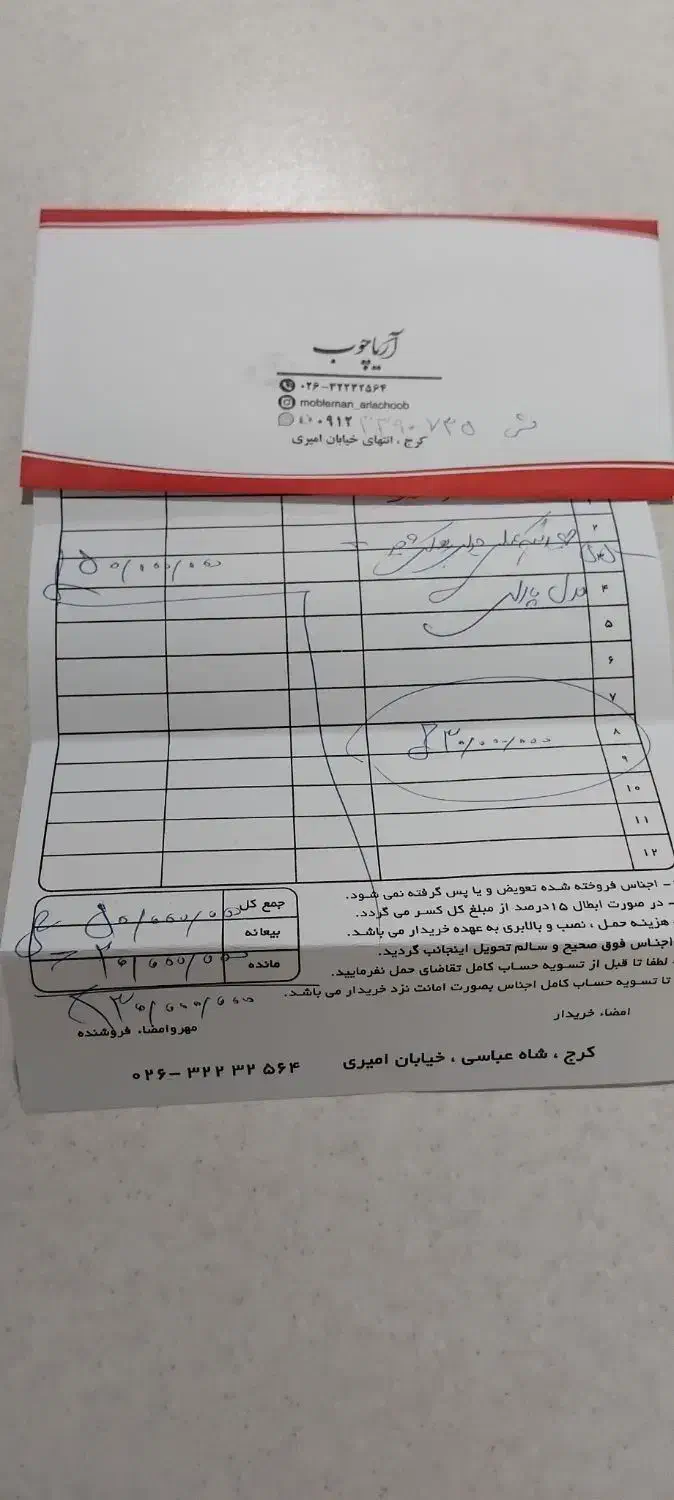 آریاچوب
۰۲۶-۳۲۲۳۲۵۶۴
mobleman_ariachoob
۰۹۱۲
کرج ، انتهای خیابان امیری
۲
۵۰/۰۰۰/۰۰۰
۴ مدل پارلی
۵
۶
۷
۸ ۳۰/۰۰۰/۰۰۰
۹
۱۰
۱۱
۱۲
جمع کل ۵۰/۰۰۰/۰۰۰
بیعانه
مانده ۲۰/۰۰۰/۰۰۰
۳۰/۰۰۰/۰۰۰
مهر و امضاء فروشنده
- اجناس فروخته شده تعویض و یا پس گرفته نمی شود.
- در صورت ابطال ۱۵درصد از مبلغ کل کسر می گردد.
هزینه حمل ، نصب و بالابری به عهده خریدار می باشد.
اجناس فوق صحیح و سالم تحویل اینجانب گردید.
لطفا تا قبل از تسویه حساب کامل تقاضای حمل نفرمایید.
تا تسویه حساب کامل اجناس بصورت امانت نزد خریدار می باشد.
امضاء خریدار
کرج ، شاه عباسی ، خیابان امیری ۰۲۶-۳۲۲ ۳۲ ۵۶۴